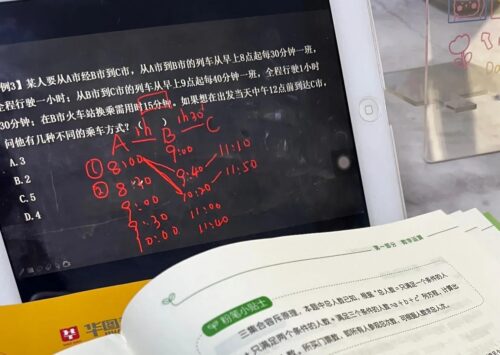 例3】某人要从A市经B市到C市，从A市到B市的列车从早上8点起每30分钟一班，
全程行驶一小时；从B市到C市的列车从早上9点起每40分钟一班，全程行驶1小时
30分钟；在B市火车站换乘需用时15分钟。如果想在出发当天中午12点前到达C市，
问他有几种不同的乘车方式？（ ）
A. 3
B. 2
C. 5
D. 4
1h 1h30'
A B C
① 8:00 9:00
② 8:30 9:40 11:10
9:00 10:20 11:50
9:30 11:00
10:00 11:40
第一部分 数学运算
粉笔小贴士
三集合容斥原理，本题中总人数已知，根据“总人数=只满足一个条件的人
+只满足两个条件的人数+满足三个条件的人数=a+b+c”列方程，计算出
华图